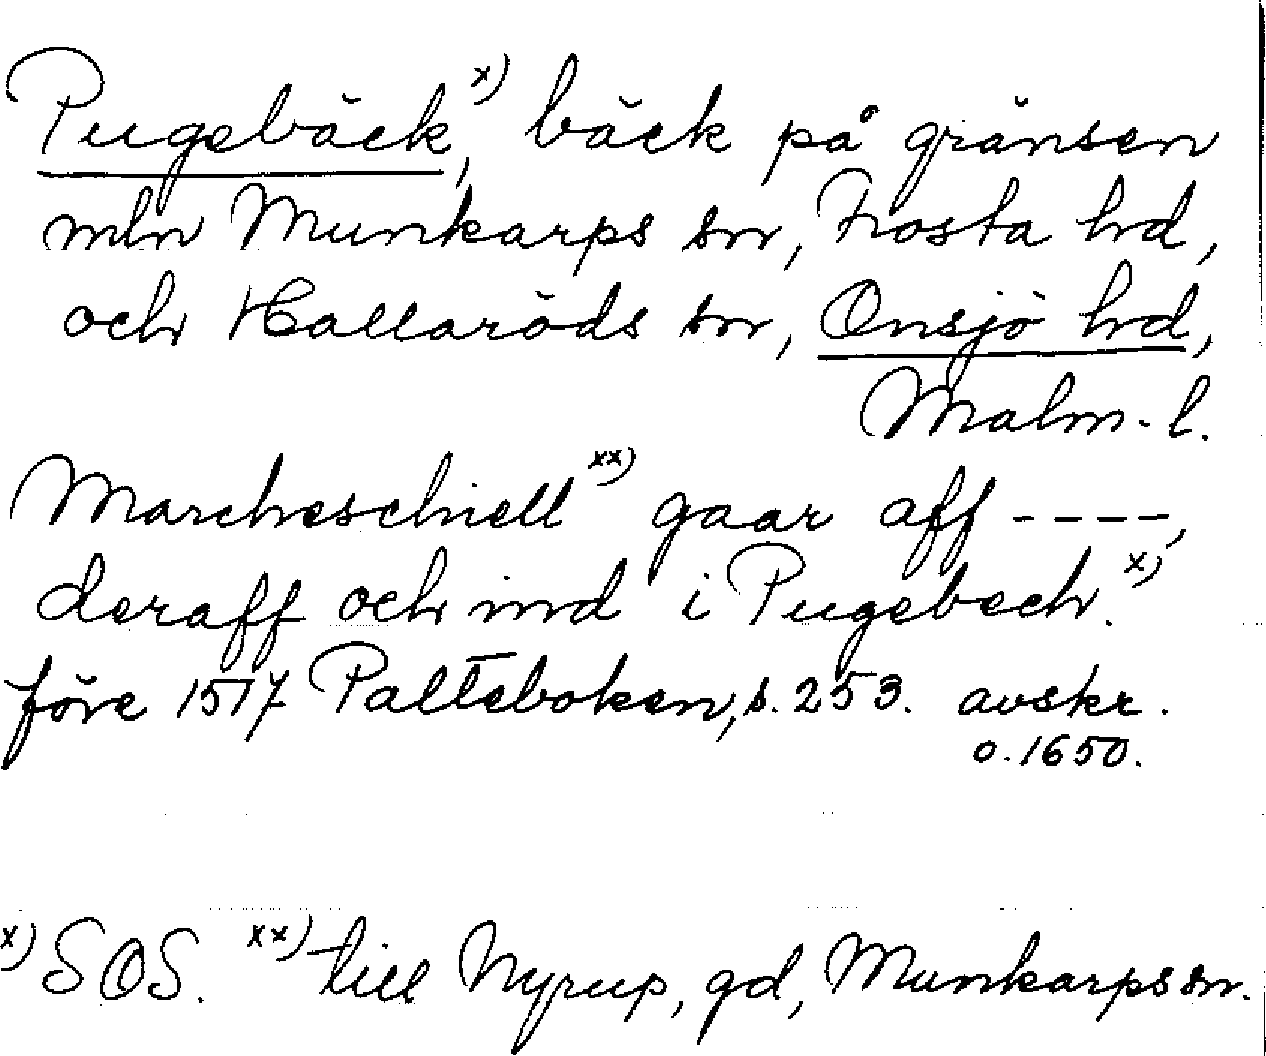 Pugebäck,x) bäck på gränsen
mln Munkarps sn, Frosta hd,
och Hallaröds sn, Onsjö hd,
Malm. l.
Marcheschiell xx) gaar aff ----,
deraff och ind i Pugebech.x)
före 1517 Palteboken, s. 253. avskr.
o. 1650.
x) SOS. xx) till Nyrup, gd, Munkarps sn.